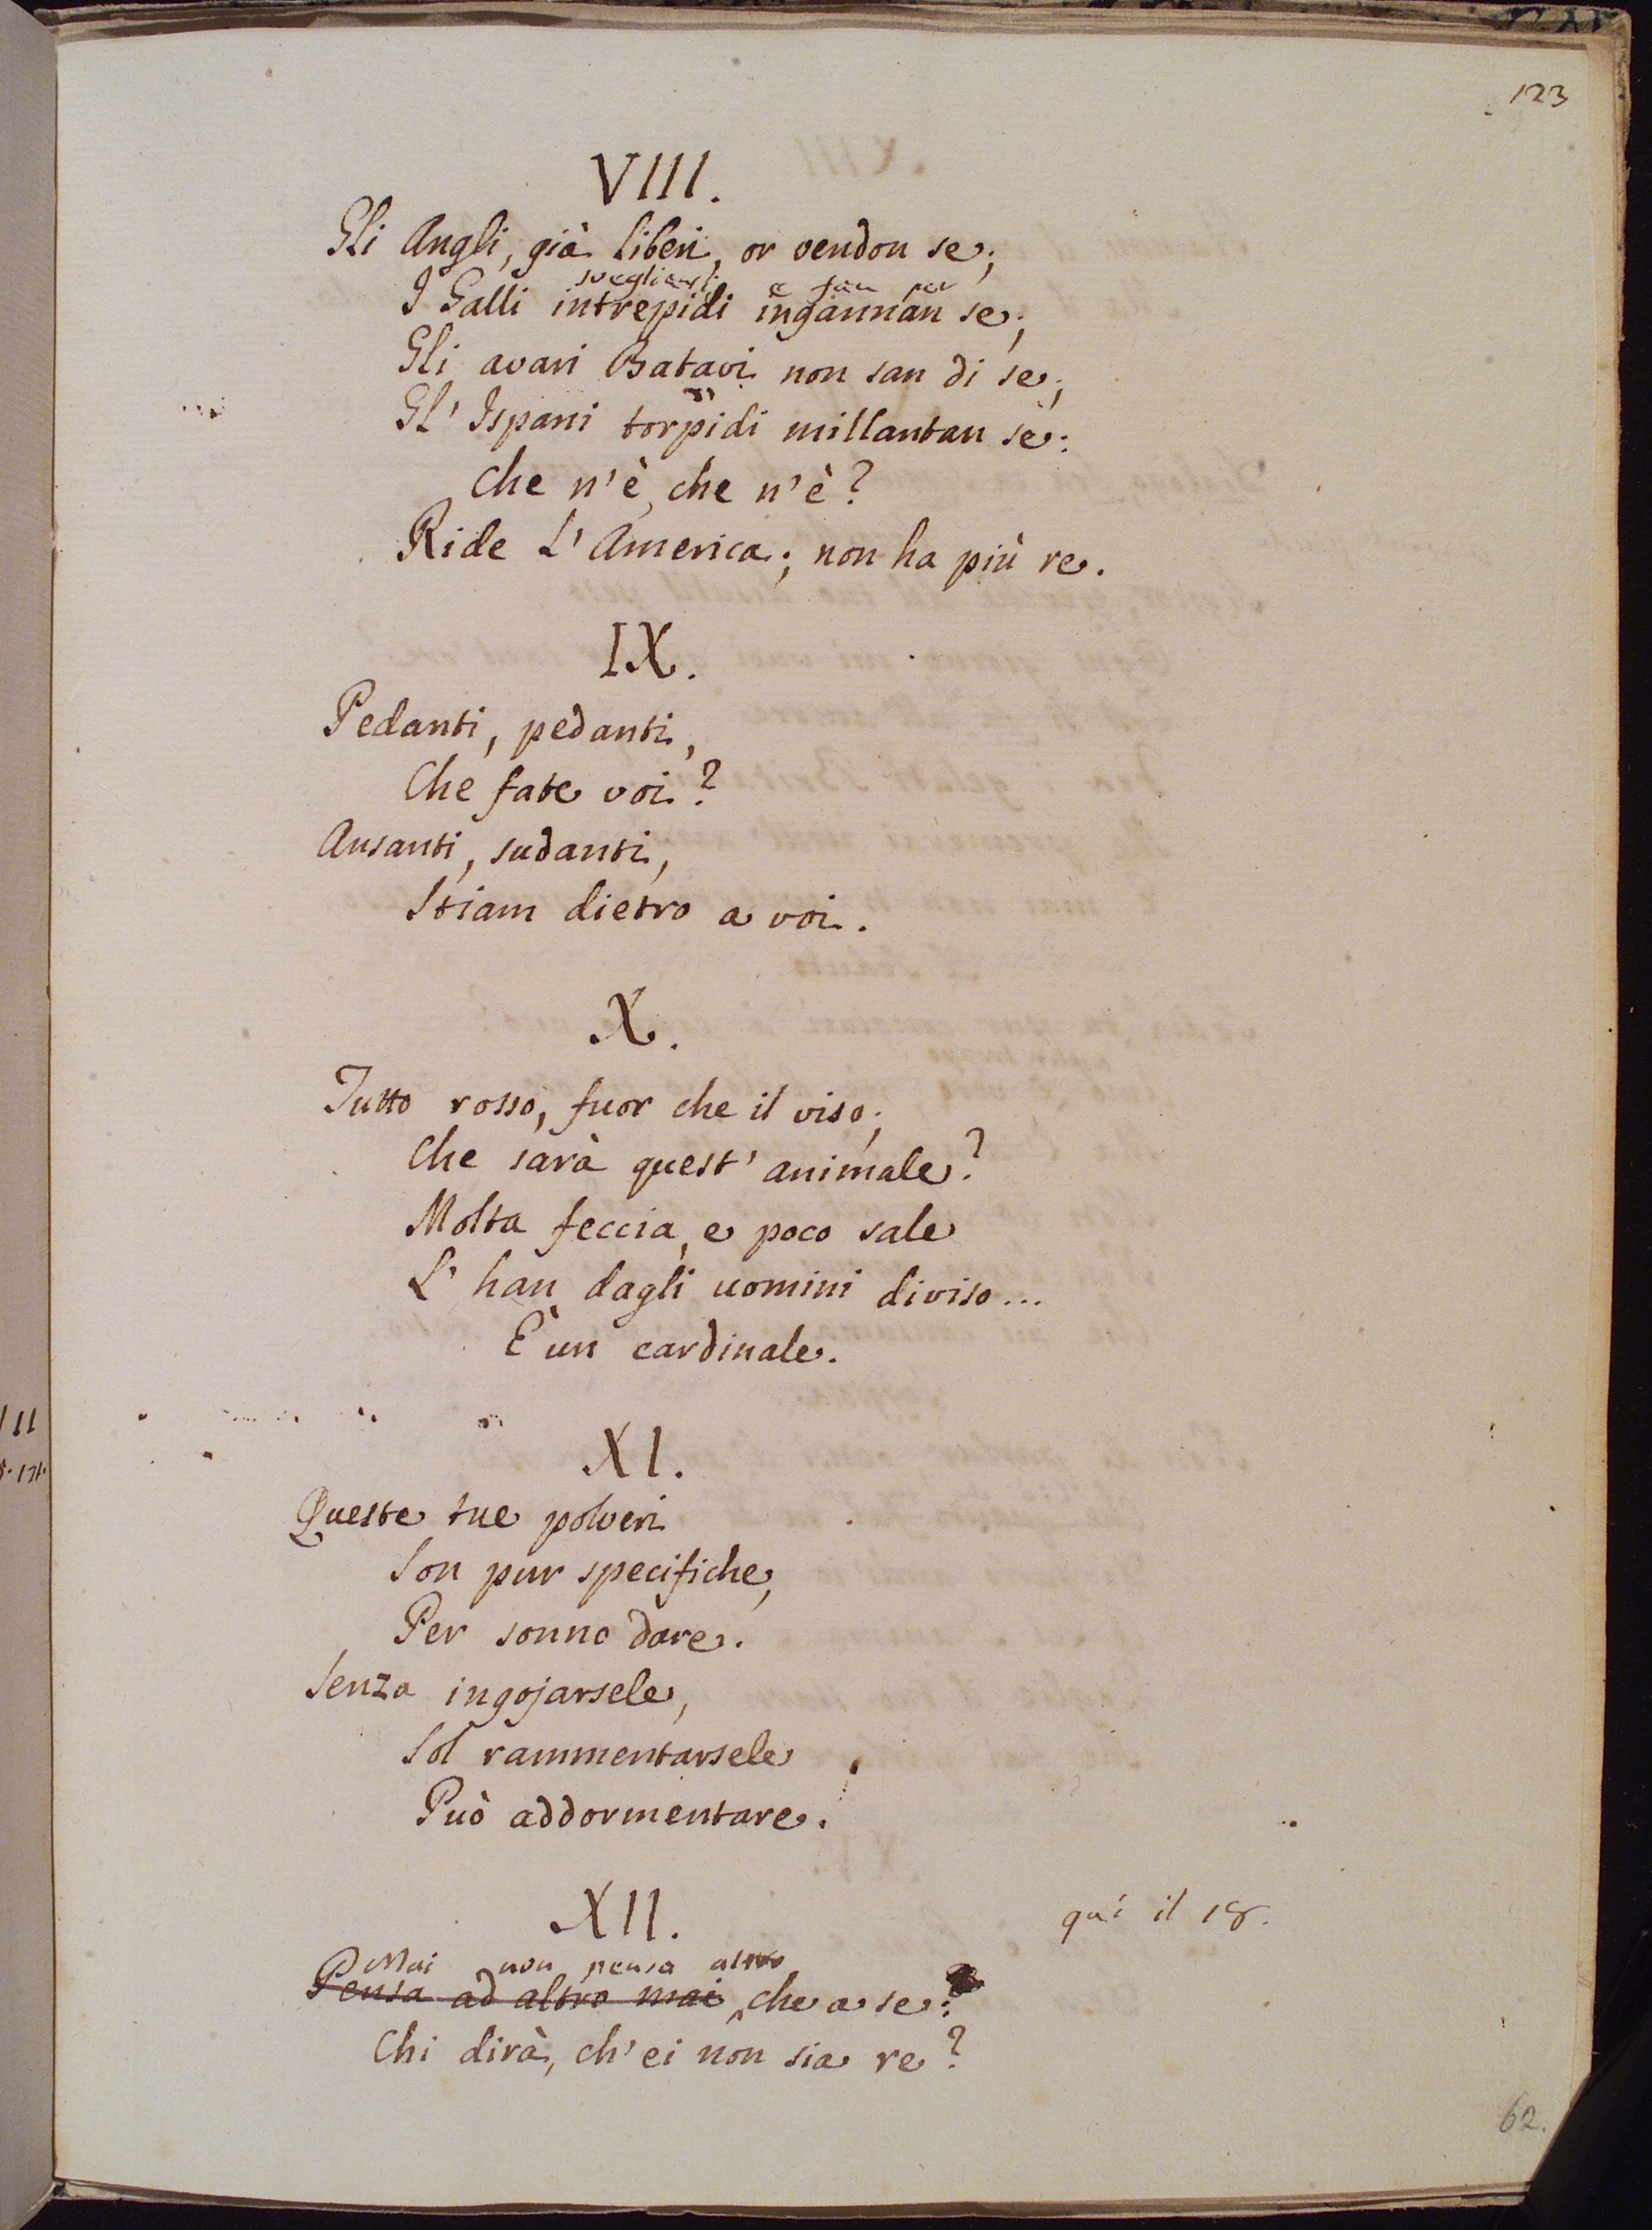 123
VIII.
Gli Angli, già liberi, or vendon se;
svegliansi e fan per
I Galli intrepidi ingannan se;
Gli avari Batavi non san di se;
Gl' Ispani torpidi millantan se:
Che n'è, che n'è?
Ride L' America; non ha più re.
IX.
Pedanti, pedanti,
Che fate voi?
Ansanti, sudanti,
Stiam dietro a voi.
X.
Tutto rosso, fuor che il viso;
Che sarà quest' animale?
Molta feccia, e poco sale
L' han dagli uomini diviso...
È un cardinale.
XI.
Queste tue polveri
Son pur specifiche,
Per sonno dare.
Senza ingojarsele,
Sol rammentarsele
Può addormentare.
XII.
qui il 18.
Mai non pensa altro
Pensa ad altro mai che a se:
Chi dirà, ch'ei non sia re?
62.